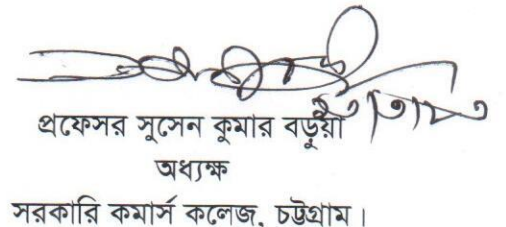 প্রফেসর সুসেন কুমার বড়ুয়া
অধ্যক্ষ
সরকারি কমার্স কলেজ, চট্টগ্রাম।